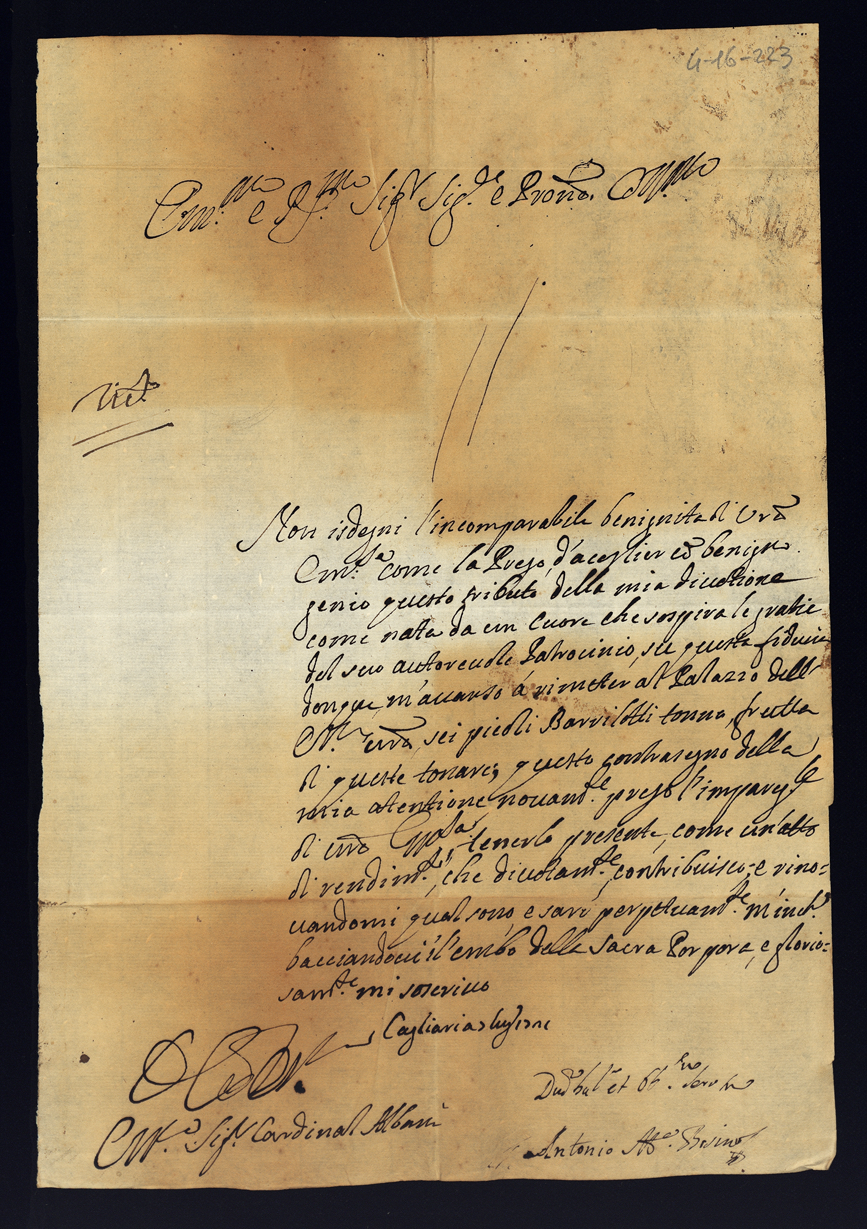 4-16-223
Em.mo e R.mo Sig.r Sig.re e Prone. Col.mo
Non isdegni l'incomparabile benignita di Vra
Em.za come la Prego, d'acoglier cō benign
genio questo tributo della mia divotione
come nata da un Cuore che sospira le gratie
del suo autorevole Patrocinio, su questa fiducia
donque m'avanso á rimeter al Palazzo dell'
Em.za vrā, sei picoli Barrilotti tonna, frutta
di queste tonare; questo contrasegno della
mia atentione novam.te prego l'impareg.le
di vrā tenerlo presente, come un'atto
di rendim.to, che divotam.te contribuisco; e rino=
vandomi qual sono e saró perpetuam.te m'inch.o
bacciandovi il lembo della Sacra Porpora, e glorio=
sam.te mi soscrivo
Cagliari
Em.o Sig.r Cardinal Albani
Antonio